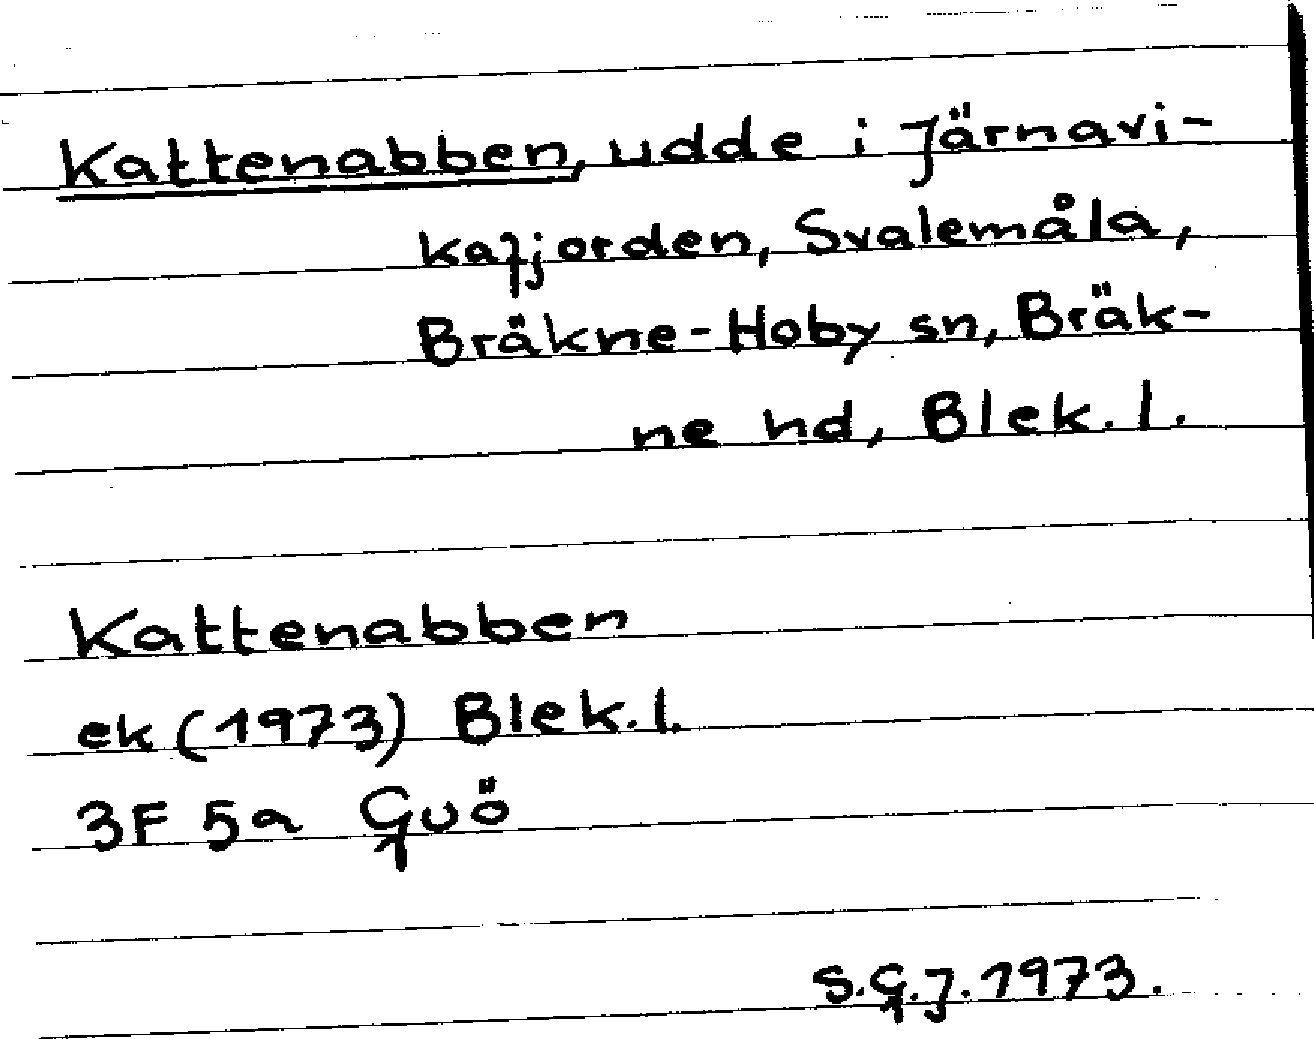 Kattenabben, udde i Järnavi-
kafjorden, Svalemåla,
Bräkne-Hoby sn, Bräk-
ne hd, Blek. l.
Kattenabben
ek (1973) Blek. l.
3F 5a Guö
S.G.J. 1973.